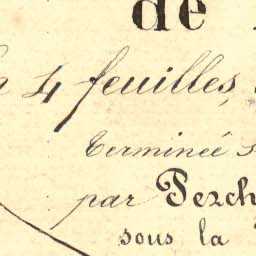 de
4 feuilles,
Terminée
par Pezch
sous la